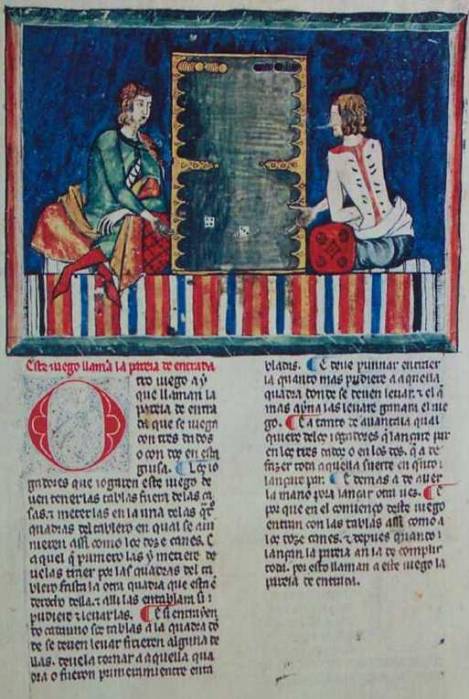 Este iuego llaman la pareia de entrada
Otro iuego a y
que llaman la
pareia de entra
da que se iuega
con tres dados
o con dos en esta
guisa. Los io
gadores que iogaren este iuego de
uen tener las tablas fuera de las ca
sas. & meter las en la una delas quatro
quadras del tablero en qual se aui
nieren assi como los doze canes. E
aquel que primero las y metiere de
uelas traer por las quadras del ta
blero fasta la otra quadra que esta en
derecho della. & alli las entablara si
pudiere & leuarlas. E si entrudieren
tablas a la quadra do
de se deuen leuar firieren alguna de
llas. deuela tornar a aquella qua
dra o fueron primeramiente enta
bladas. E deue punnar en traer
la quanto mas pudiere a aquella
quadra donde se deuen leuar. & el que
mas ayna las leuare ganara el iue
go. E a tanto de auantaia qual
quiere delos iogadores que lançare par
en los tres dados o en los dos. que a de
fazer toda aquella suerte en quanto
lançare par. E demas a de auer
la mano pora lançar otra uez. E
por que en el comienço deste iuego
entran con las tablas assi como a
los doze canes. & depues quando
lançan la pareia an la de complir
toda. por esso llaman a este iuego la
pareia de entrada.